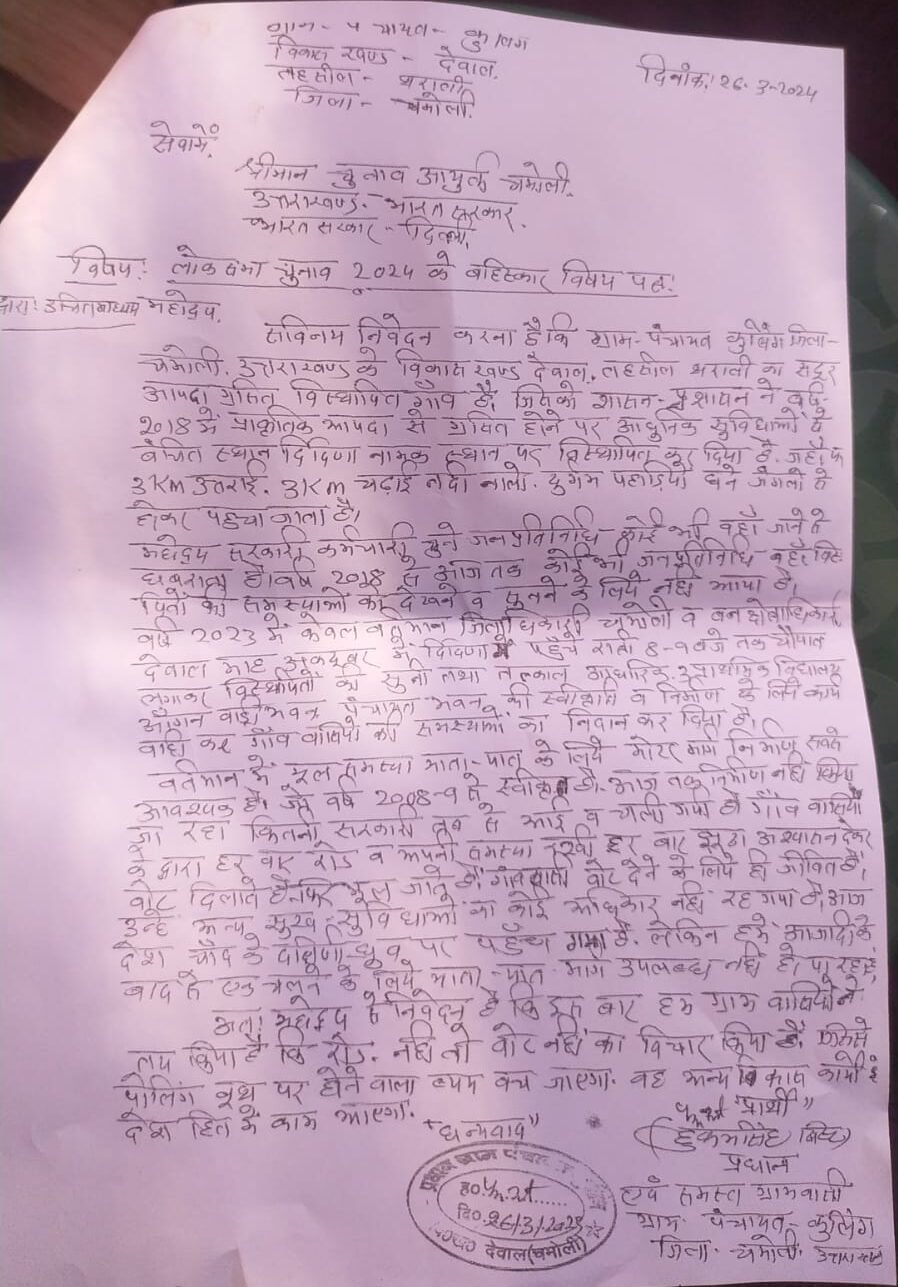 ग्राम-पंचायत- कुलिंग
विकास खण्ड- देवाल,
तहसील- थराली
जिला- चमोली.
दिनांक! 26-3-2024
सेवामें,
श्रीमान चुनाव आयुक्त चमोली.
उत्तराखण्ड- भारत सरकार.
भारत सरकार- दिल्ली,
विषय: लोक सभा चुनाव 2024 के बहिस्कार विषय पत्र!
द्वारा: उचित माध्यम महोदय,
सविनय निवेदन करना है कि ग्राम-पंचायत कुलिंग जिला-
चमोली. उत्तराखण्ड के विकास खण्ड देवाल, तहसील थराली का सदूर
आपदा ग्रसित विस्थापित गाँव है, जिसको शासन-प्रशासन ने वर्ष-
2018 में प्राकृतिक आपदा से ग्रसित होने पर आधुनिक सुविधाओं से
वंचित स्थान दिदिणा नामक स्थान पर विस्थापित कर दिया है. जहाँ कि
3Km उतराई. 3Km चढ़ाई नदी नालो. दुर्गम पहाड़ियों घने जंगलो से
होकर पहुंचा जाता है।
महोदय सरकारी कर्मचारी चुने जनप्रतिनिधि कोई भी वहाँ जाने से
घबराता है। वर्ष 2018 से आज तक कोई भी जनप्रतिनिधि वहाँ विस्था-
पितों की समस्याओ को देखने व सुनने के लिये नही आया है,
वर्ष 2023 में केवल वर्तमान जिलाधिकारी चमोली व वन क्षेत्राधिकारी
देवाल माह अक्टूबर में दिदिणा में पहुँचे रात्री 8-9 बजे तक चौपाल
लगाकर विस्थापितो को सुना तथा तत्काल प्राथमिक विद्यालय
आँगन वाड़ी भवन पंचायत भवन की स्वीकृति व निर्माण के लिये कार्य
वाही कर गाँव वासियो की समस्याओं का निदान कर दिया है,
वर्तमान में मूल समस्या याता-यात के लिये मोटर मार्ग निर्माण सबसे
आवश्यक है, जो वर्ष 2008-9 से स्वीकृत है, आज तक निर्माण नही किया
जा रहा कितनी सरकारी तब से आई व चली गयी है गाँव वासियों
के द्वारा हर बार रोड व अपनी समस्या रखी हर बार झूठा आश्वासन देकर
वोट दिलाते है फिर भूल जाते है, गांव वासी वोट देने के लिये ही जीवित है,
उन्हे अन्य सुख-सुविधाओं का कोई अधिकार नही रह गया है, आज
देश चाँद के दक्षिणी ध्रुव पर पहुँच गया है. लेकिन हमें आजादी के
बाद से एक चलने के लिये याता-यात मार्ग उपलब्ध नही हो पा रहा है,
अतः महोदय से निवेदन है कि इस बार हम ग्राम वासियों ने
तय किया है कि रोड. नही तो वोट नही का विचार किया है, जिससे
पोलिंग बूथ पर होने वाला व्यय बच जाएगा. वह अन्य विकास कार्यो में
देश हित में काम आएगा.
"धन्यवाद"
"प्रार्थी"
(हुकम सिंह बिष्ट)
प्रधान
एवं समस्त ग्रामवासी
ग्राम पंचायत- कुलिंग
जिला- चमोली उत्तराखण्ड
प्रधान ग्राम पंचायत
ह०
दि० 26/3/2023
देवाल (चमोली)